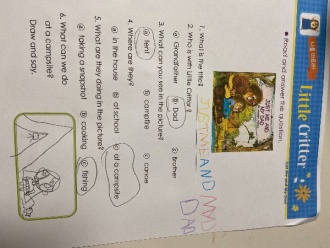 Little Critter
Read and answer the question.
JUST ME AND
MY DAD
1. What is the title?
JUSTME AND MAD
DAD
2. Who is with Little Critter?
ⓐ Grandfather ⓑ Dad ⓒ Brother
3. What can you see in the picture?
ⓐ tent ⓑ campfire ⓒ canoe
4. Where are they?
ⓐ in the house ⓑ at school ⓒ at a campsite
5. What are they doing in the picture?
ⓐ taking a snapshot ⓑ cooking ⓒ fishing
6. What can we do
at a campsite?
Draw and say.